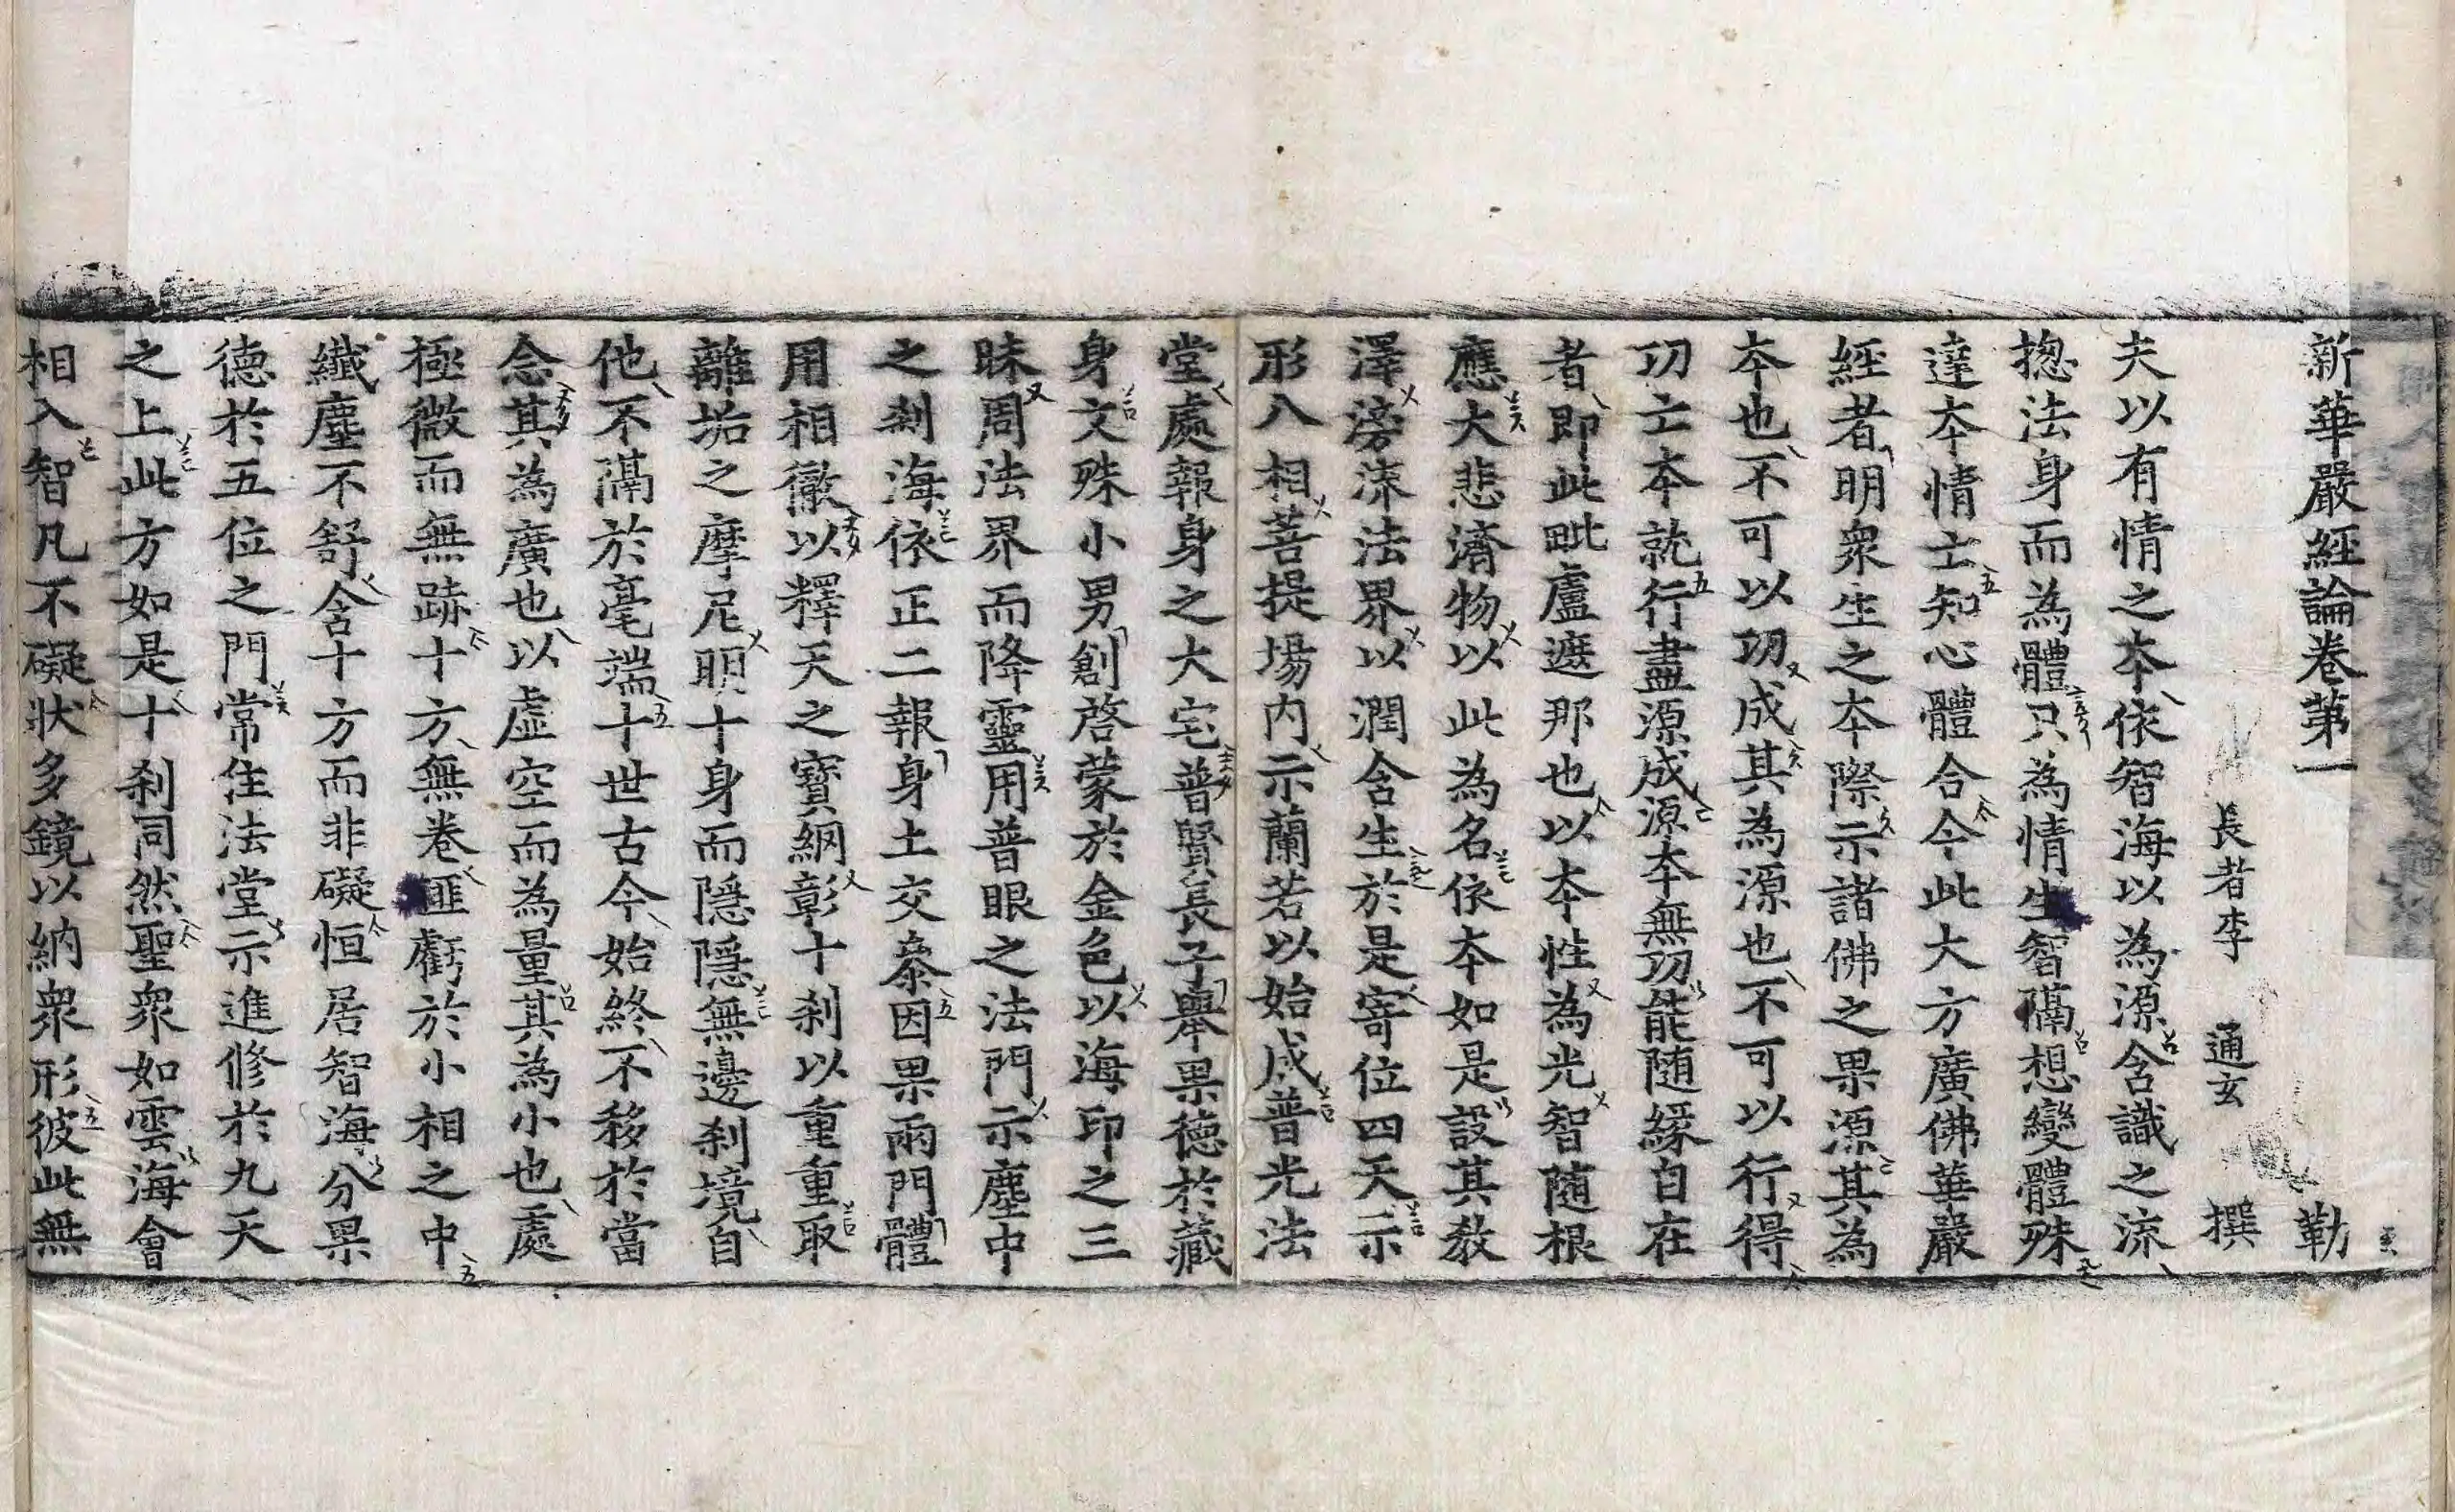 新華嚴經論卷第一 勒
長者李 通玄 撰
夫以有情之本依智海以為源含識之流
揔法身而為體只為情生智隔想變體殊
達本情亡知心體合今此大方廣佛華嚴
經者明衆生之本際示諸佛之果源其為
本也不可以功成其為源也不可以行得
功亡本就行盡源成源本無功能随緣自在
者即此毗盧遮那也以本性為光智随根
應大悲濟物以此為名依本如是設其教
澤滂流法界以潤含生於是寄位四天示
形八相菩提場内示蘭若以始成普光法
堂處報身之大宅普賢長子舉果德於藏
身文殊小男創啓蒙於金色以海印之三
昧周法界而降靈用普眼之法門示塵中
之刹海依正二報身土交叅因果兩門體
用相徹以釋天之寶網彰十刹以重重取
離垢之摩尼明十身而隱隱無邊刹境自
他不隔於毫端十世古今始終不移於當
念其為廣也以虛空而為量其為小也處
極微而無跡十方無卷匪虧於小相之中
纖塵不舒含十方而非礙恒居智海分果
德於五位之門常住法堂示進修於九天
之上此方如是十刹同然聖衆如雲海會
相入智凡不礙狀多鏡以納衆形彼此無